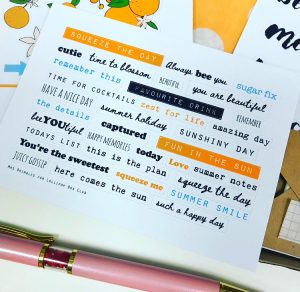 SQUEEZE THE DAY
cutie time to blossom Always bee you
remember this BEAUTIFUL sugar fix
you are beautiful
TIME FOR COCKTAILS FAVOURITE DRINK REMEMBER
HAVE A NICE DAY zest for life amazing day
the details summer holiday
SUNSHINY DAY
beYOUtiful captured FUN IN THE SUN
TODAYS LIST HAPPY MEMORIES today Love summer notes
You're the sweetest this is the plan
squeeze the day
JUICY GOSSIP squeeze me SUMMER SMILE
here comes the sun such a happy day